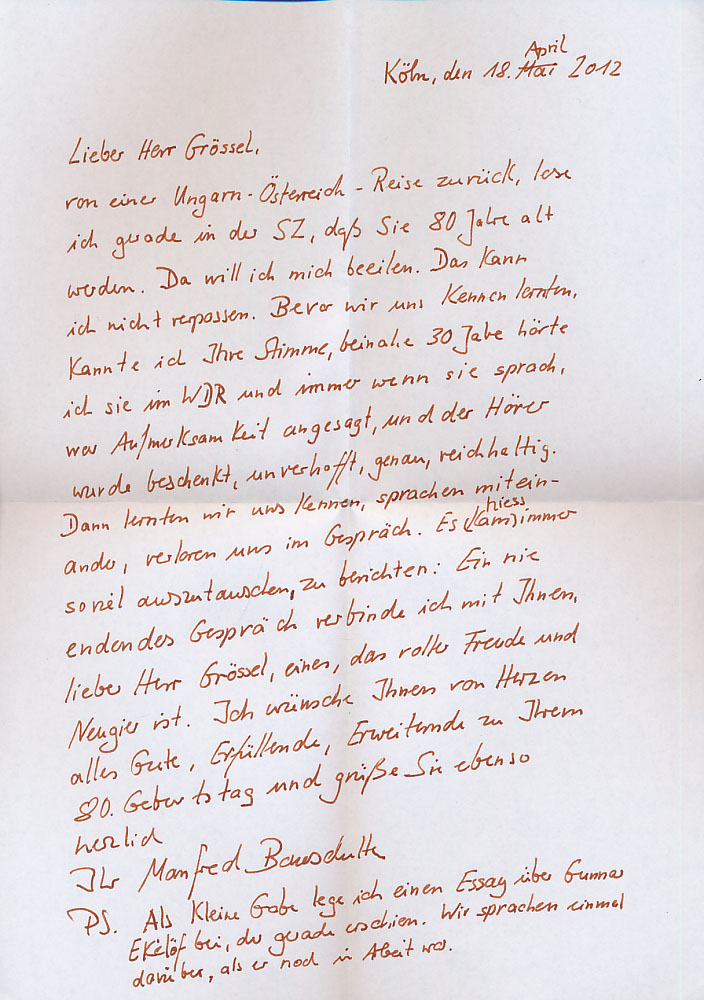 Köln, den 18. Mai April 2012
Lieber Herr Grössel,
von einer Ungarn-Österreich-Reise zurück, lese
ich gerade in der SZ, daß Sie 80 Jahre alt
werden. Da will ich mich beeilen. Das kann
ich nicht verpassen. Bevor wir uns kennen lernten,
kannte ich Ihre Stimme, beinahe 30 Jahre hörte
ich sie im WDR und immer wenn sie sprach,
war Aufmerksamkeit angesagt, und der Hörer
wurde beschenkt, unverhofft, genau, reichhaltig.
Dann lernten wir uns kennen, sprachen mitein-
ander, verloren uns im Gespräch. Es hiess immer
soviel auszutauschen, zu berichten: Ein nie
endendes Gespräch verbinde ich mit Ihnen,
lieber Herr Grössel, eines, das voller Freude und
Neugier ist. Ich wünsche Ihnen von Herzen
alles Gute, Erfüllende, Erweiternde zu Ihrem
80. Geburtstag und grüße Sie ebenso
herzlich
Ihr Manfred Bauschulte
PS. Als kleine Gabe lege ich einen Essay über Gunnar
Ekelöf bei, der gerade erschien. Wir sprachen einmal
darüber, als er noch in Arbeit war.